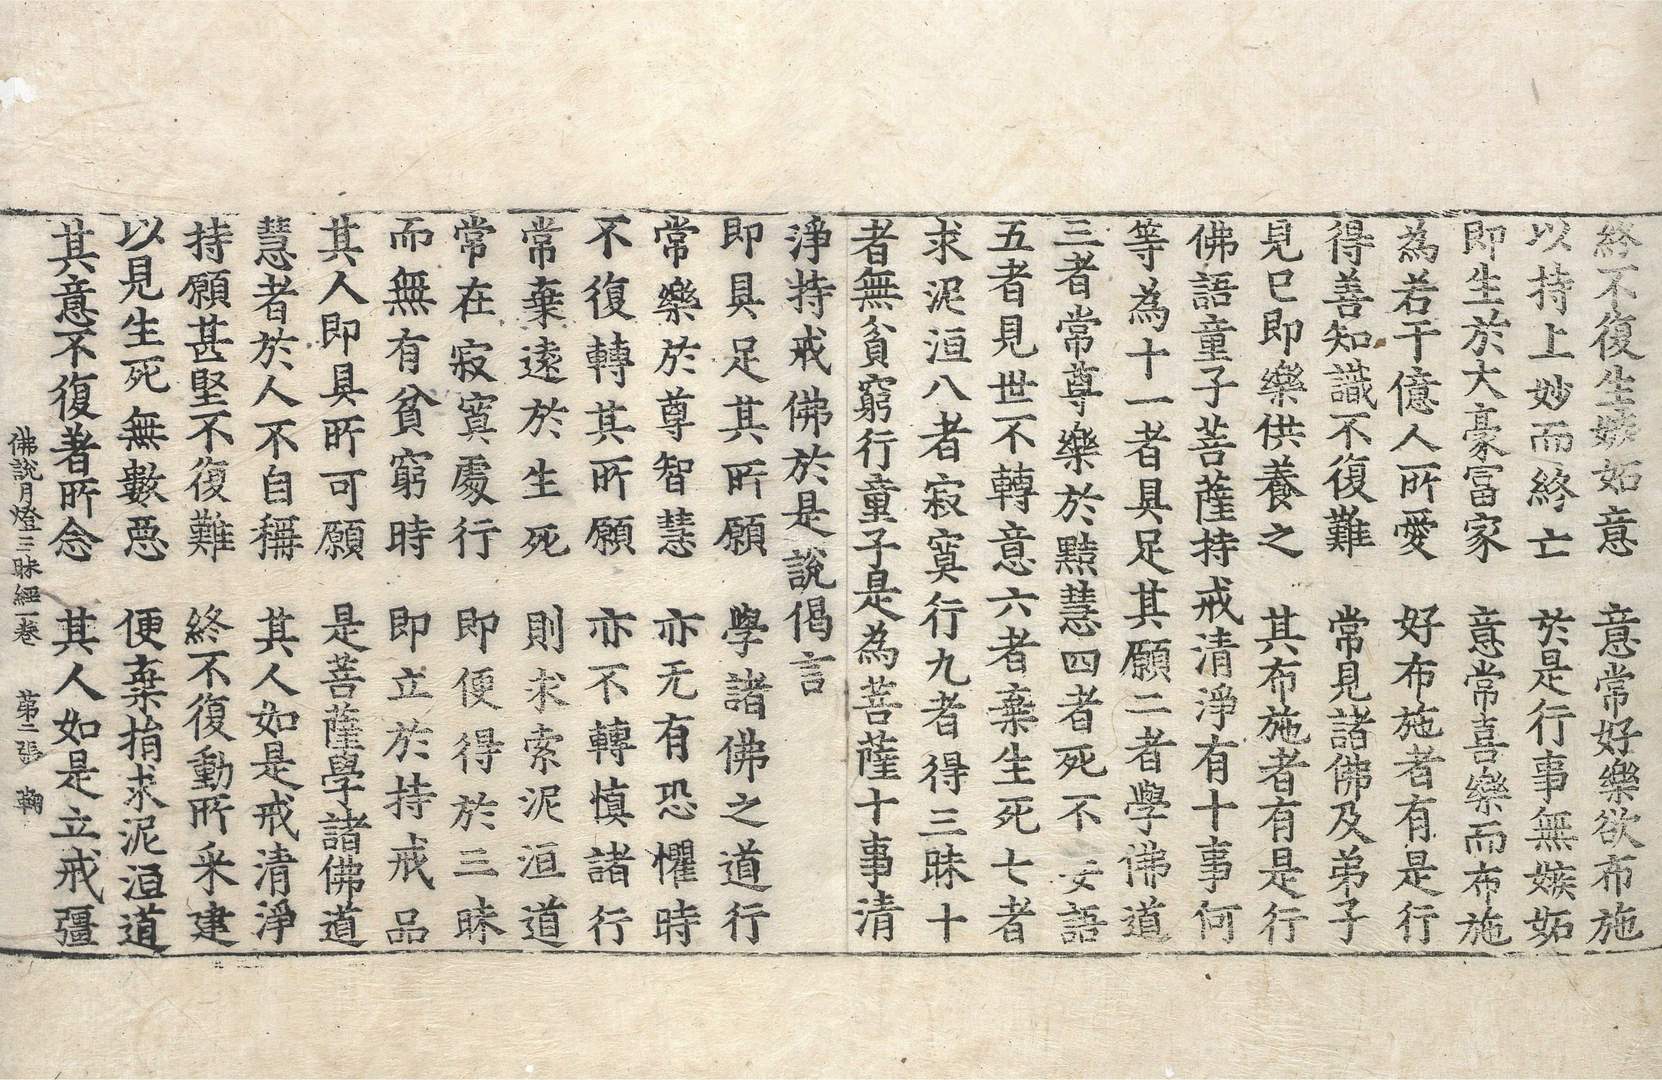 終不復生嫉妬意　意常好樂欲布施
以持上妙而終亡　於是行事無嫉妬
即生於大豪富家　意常喜樂而布施
為若干億人所愛　好布施者有是行
得善知識不復難　常見諸佛及弟子
見已即樂供養之　其布施者有是行
佛語童子菩薩持戒清淨有十事何
等為十一者具足其願二者學佛道
三者常尊樂於黠慧四者死不妄語
五者見世不轉意六者棄生死七者
求泥洹八者寂寞行九者得三昧十
者無貧窮行童子是為菩薩十事清
淨持戒佛於是說偈言
即具足其所願　學諸佛之道行
常樂於尊智慧　亦无有恐懼時
不復轉其所願　亦不轉慎諸行
常棄遠於生死　則求索泥洹道
常在寂寞處行　即便得於三昧
而無有貧窮時　即立於持戒品
其人即具所可願　是菩薩學諸佛道
慧者於人不自稱　其人如是戒清淨
持願甚堅不復難　終不復動所釆建
以見生死無數惡　便棄捐求泥洹道
其意不復著所念　其人如是立戒彊
佛說月燈三昧經一卷　第二張　鞠